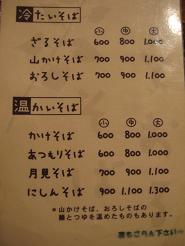 冷たいそば
小 中 大
ざるそば 600 800 1.000
山かけそば 700 900 1.100
おろしそば 700 900 1.100
温かいそば
小 中 大
かけそば 600 800 1.000
あつもりそば 600 800 1.000
月見そば 700 900 1.100
にしんそば 900 1.100 1.300
*山かけそば、おろしそばの
麺とつゆを温めたものもあります。
裏もごらん下さい